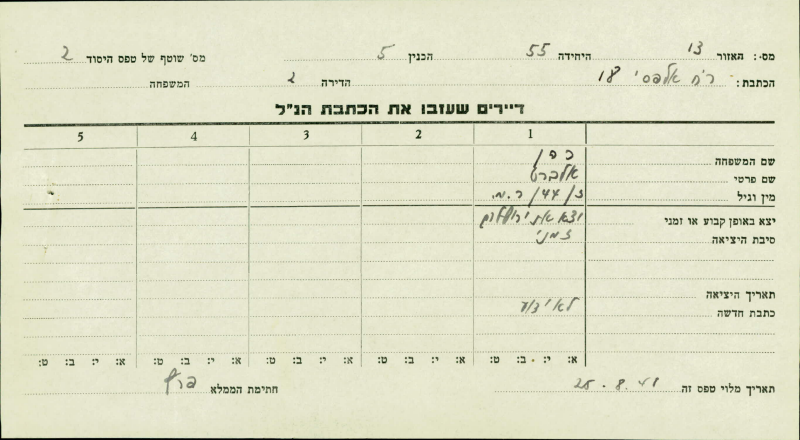 מס׳: האזור 13 היחידה 55 הבנין 5 מס׳ שוטף של טפס היסוד 2
הכתבת: רח׳ אלפסי 18 הדירה 2 המשפחה
דיירים שעזבו את הכתבת הנ"ל
1 2 3 4 5
שם המשפחה כהן
שם פרטי אלברט
מין וגיל ז/44/ר.מ.
יצא באופן קבוע או זמני יצא את ירושלים
סיבת היציאה זמני
תאריך היציאה
כתבת חדשה לא ידוע
א: י: ב: ט: א: י: ב: ט: א: י: ב: ט: א: י: ב: ט: א: י: ב: ט:
תאריך מלוי טפס זה 25.8.41 חתימת הממלא